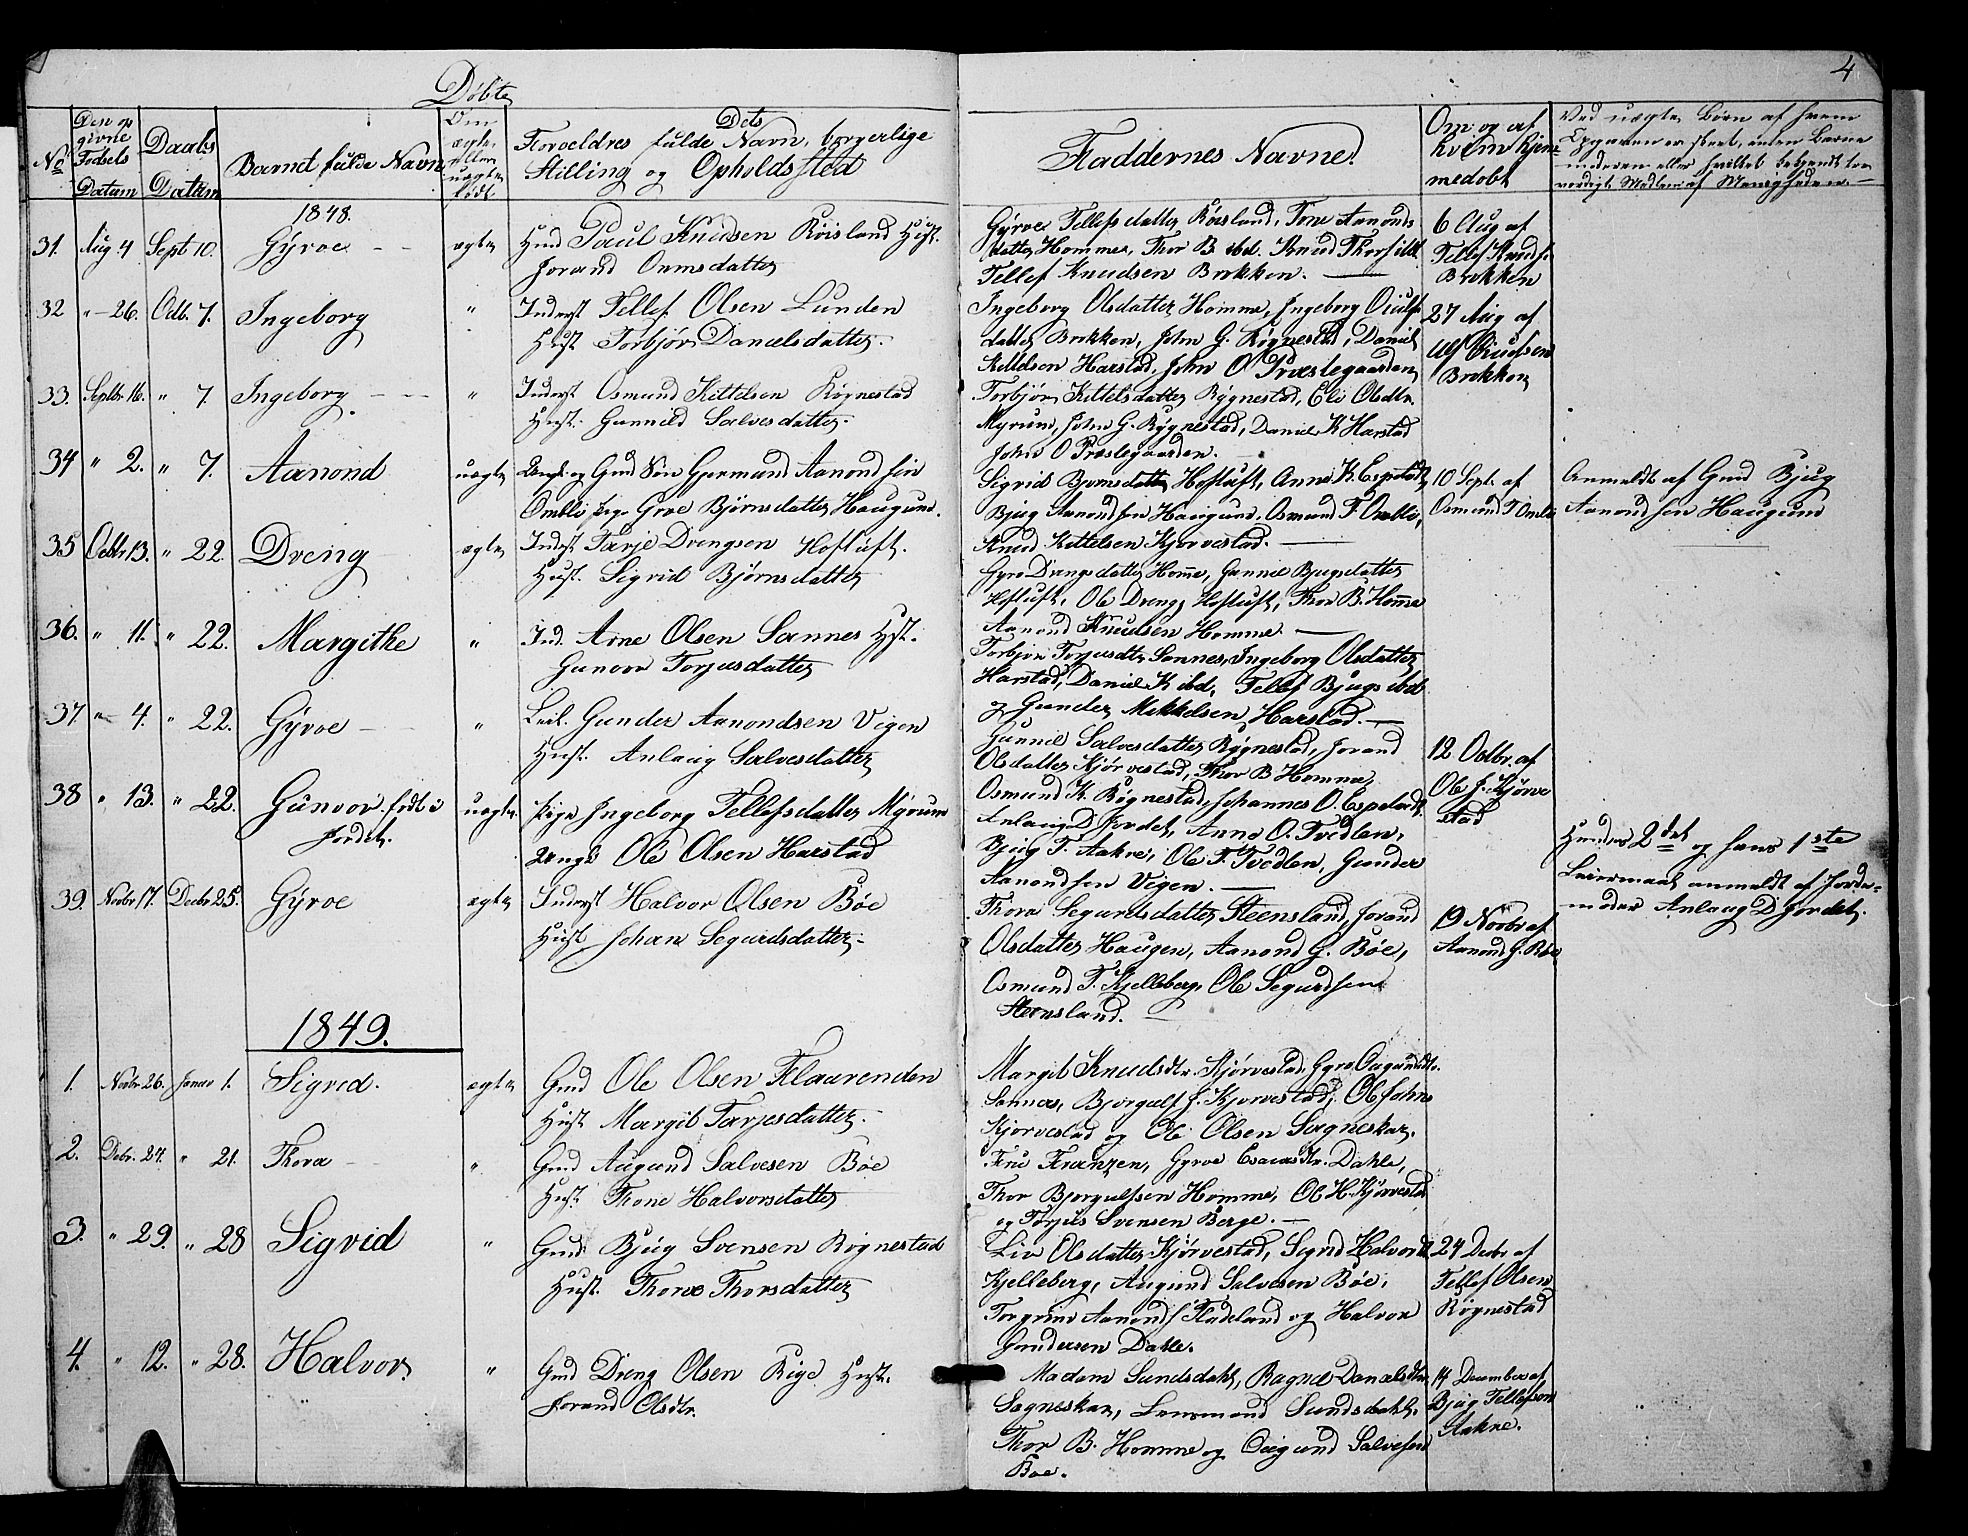 4
Døbte
No
Den op
givne
Fødsels
Datum
Daabs
Datum
Barnets fulde Navn
Om
ægte
eller
uægte
født
Dets
Forældres fulde Navn, borgerlige
Stilling og Opholdssted
Faddernes Navne.
Om og af
hvem hjem
medøbt
Ved uægte Børn af hvem
Opgaven er skeet, enten Barne
moderen eller hvilket bekjendt tro
værdigt Medlem af Menigheden.
1848.
31. Aug 4 Sept 10. Gyroe ægte Gmd Paul Knudsen Røisland Hust.
Jorand Onmsdatter
Gyroe Tellefsdatter Røisland, Tone Aanonds
datter Homme, Thor B. ibd. Knud Thorsildt
Tellef Knudsen Brokken.
6 Aug af
Tellef Knuds.
Brokken
32 " 26. Octb. 7. Ingeborg " Inderst Tellef Olsen Lunden
Hust Torbjør Danielsdatter.
Ingeborg Olsdatter Homme, Ingeborg Oiulfs
datter Brokken, John G. Røgnestad, Daniel
Kittelsen Harstad, John O Præstegaarden
27 Aug af
Ulf Oiulfsen
Brokken
33. Septbr 16. " 7 Ingeborg " Inderst Osmund Kittelsen Røgnestad
Hust. Gunnild Salvesdatter.
Torbjør Kittelsdatter Rygnestad, Eli Olsdtr.
Myrum, John G. Rygnestad, Daniel K Harstad
John O Præstegaarden.
34 " 2. " 7. Aanond uægte Ungk. og Gmd Søn Gjermund Aanondsen
Omlie Pige Groe Bjørnsdatter Haugum.
Sigrid Bjørnsdatter Hofluft, Anne K. Espetvedt
Bjug Aanondsen Haugum, Osmund T Omlie,
Knud Kittelsen Kjørvestad.
10 Sept. af
Osmund T Omlie
Anmeldt af Gmd Bjug
Aanondsen Haugum
35 Octbr 13. " 22. Dreng ægte Inderst Tarje Drengsen Hofluft.
Hust. Sigrid Bjørnsdatter
Gyro Drengsdatter Homme, Gunnil Bjugsdatter
Hofluft, Ole Drengs Hofluft, Thor B. Homme
Aanond Knudsen Homme.
36. " 11. " 22. Margithe " Ind. Arne Olsen Sannes Hst.
Gunvor Torjusdatter
Torbjør Torjusdtr Sannes, Ingeborg Olsdatter
Harstad, Daniel K ibd, Tellef Bjugs ibd
og Gunder Mikkelsen Harstad.
37 " 4. " 22. Gyroe " Leil. Gunder Aanondsen Vigen
Hust. Anlaug Salvesdatter
Gunnil Salvesdatter Rygnestad, Jorand
Olsdatter Kjørvestad, Thor B Homme,
Osmund K. Røgnestad, Johannes O. Espetvedt
12 Octbr. af
Ole J. Kjørve
stad
38 " 13. " 22. Gunvor født i
Jordet.
uægte. Pige Ingeborg Tellefsdatter Myrum
Ungk Ole Olsen Harstad
Anlaug D Jordet, Anne O. Tvedten,
Bjug T. Aakne, Ole T. Tvedten, Gunder
Aanondsen Vigen.
Hendes 2det og hans 1ste
Leiermaal anmeldt af Jorde-
moder Anlaug D Jordet.
39. Novbr 17. Decbr 25. Gyroe ægte Inderst Halvor Olsen Bøe
Hust Johan Segurdsdatter.
Thora Segurdsdatter Steensland, Jorand
Olsdatter Haugen, Aanond G. Bøe,
Osmund T. Kjelleberg, Ole Segurdsen
Steensland.
19 Novbr af
Aanond G. Bøe
1849.
1. Novbr 26. Januar 1. Sigred. ægte Gmd Ole Olsen Flaarenden
Hust Margit Tarjesdatter.
Margit Knudsdtr. Kjørvestad, Gyro Ougundsdtr
Sannes, Bjorgulf J. Kjørvestad, Ole Johns
Kjørvestad og Ole Olsen Sagneskar.
2. Debr. 27. " 21. Thora " Gmd Augund Salvesen Bøe
Hust. Thone Halvorsdatter
Fru Franzen, Gyroe Esaiasdtr. Dahle,
Thor Bjorgulfsen Homme, Ole H. Kjørvestad
og Torjus Svensen Berge.
3. " 29. " 28 Sigrid " Gmd. Bjug Svensen Røgnestad
Hust. Thone Thorsdatter
Liv Olsdatter Kjørvestad, Sigrid Halvorsd
Kjelleberg, Augund Salvesen Bøe,
Torgrim Aanonds Fladeland og Halvor
Gundersen Dahle.
24 Decbr af
Tellef Olsen
Røgnestad
4. " 12. " 28. Halvor " Gmd Dreng Olsen Rige Hust.
Jorand Olsdtr.
Madam Sundsdahl, Ragnil Danielsdtr
Sagneskar, Lensmand Sundsdahl.
Thor B. Homme og Ougund Salvesen
Bøe.
14 December af
Bjug Tellefsen
Aakne.